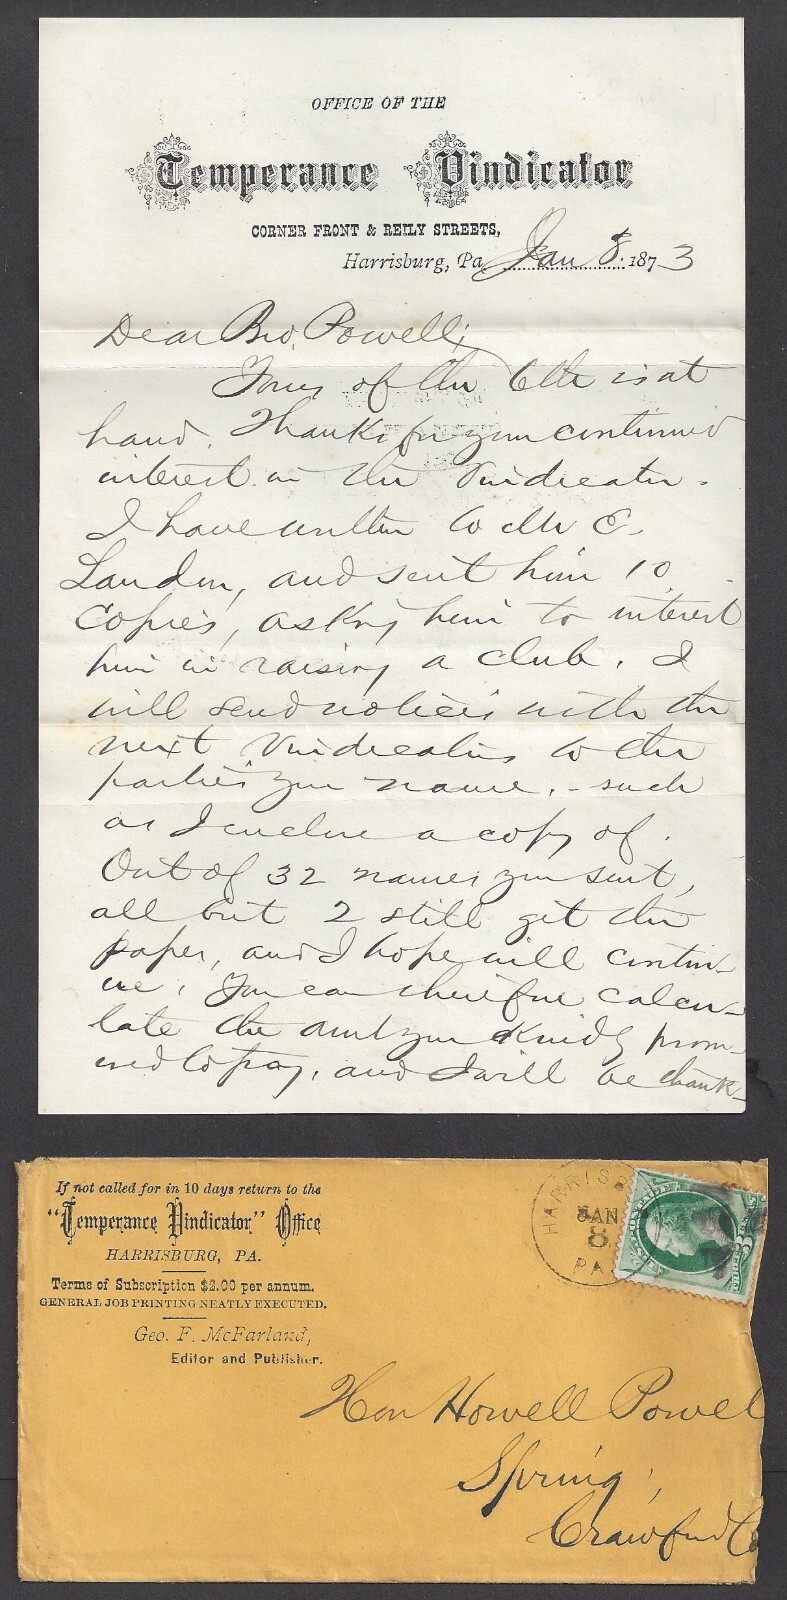 OFFICE OF THE
Temperance Vindicator
CORNER FRONT & REILY STREETS,
Harrisburg, Pa, Jan 8. 1873
Dear Bro. Powell;
Yours of the 6th is at
hand. Thanks for your continued
interest in the Vindicator.
I have written to Mr E.
Landon, and sent him 10
copies, asking him to interest
him in raising a club. I
will send notices with the
next Vindicator to the
parties you name, - such
as I enclose a copy of.
Out of 32 names you sent,
all but 2 still get the
paper, and I hope will contin-
ue. You can therefore calcu-
late the amt you kindly prom-
ised to pay, and I will be thank-
If not called for in 10 days return to the
"Temperance Vindicator" Office
HARRISBURG, PA.
Terms of Subscription $2.00 per annum.
GENERAL JOB PRINTING NEATLY EXECUTED.
Geo. F. McFarland,
Editor and Publisher.
HARRISB
JAN
8
PA
Hon Howell Powel
Spring,
Crawford Co